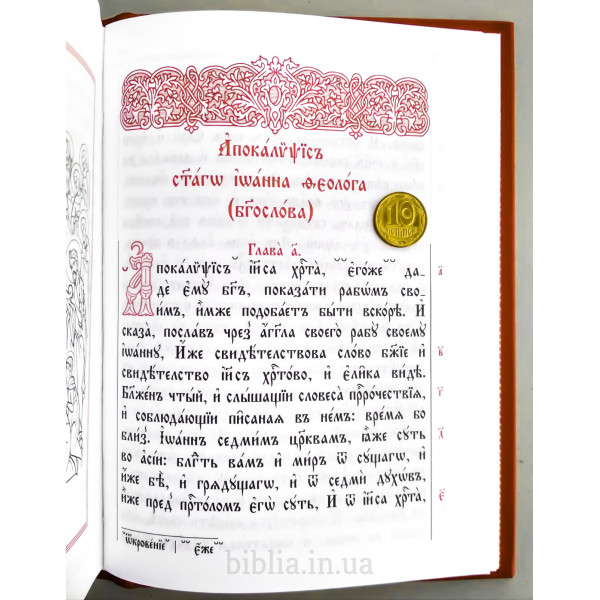 А҆пока́лѷѱїсъ
ст҃а́гѡ і҆ѡа́нна ѳеоло́га
(бг҃осло́ва)
10
КОПІЙОК
Глава̀ а҃.
А҆пока́лѷѱїсъ і҆и҃са хр҇та̀, є҆го́же да-
дѐ є҆мꙋ̀ бг҃ъ, показа́ти рабѡ́мъ сво-
и҆̀мъ, и҆̀мже подоба́етъ бы́ти вско́рѣ. И҆
сказа̀, посла́въ чрез̾ а҆́гг҃ла своегѡ̀ рабꙋ̀ своемꙋ̀
і҆ѡа́ннꙋ, И҆́же свидѣ́телствова сло́во бж҃їе и҆
свидѣ́телство і҆и҃съ хр҇то́во, и҆ є҆ли̑ка ви́дѣ.
Бл҃же́нъ чты́й, и҆ слы́шащїи словеса̀ прⷪ҇ро́чествїѧ,
и҆ соблюда́ющїи пи̑саная въ не́мъ: вре́мѧ бо
бли́з̾. І҆ѡа́ннъ седми́мъ цр҃квамъ, ꙗ҆̀же сꙋ́ть
во а҆сі́и: бл҃года́ть ва́мъ и҆ ми́ръ ѿ сꙋ́щагѡ, и҆
и҆́же бѣ̀, и҆ грѧдꙋ́щагѡ, и҆ ѿ седмѝ дꙋхѡ́въ,
и҆̀же пред̾ прⷭ҇то́ломъ є҆гѡ̀ сꙋ́ть, И҆ ѿ і҆и҃са хр҇та̀,
а҃
в҃
г҃
д҃
є҃
ѿкрове́нїе | є҆́же
biblia.in.ua